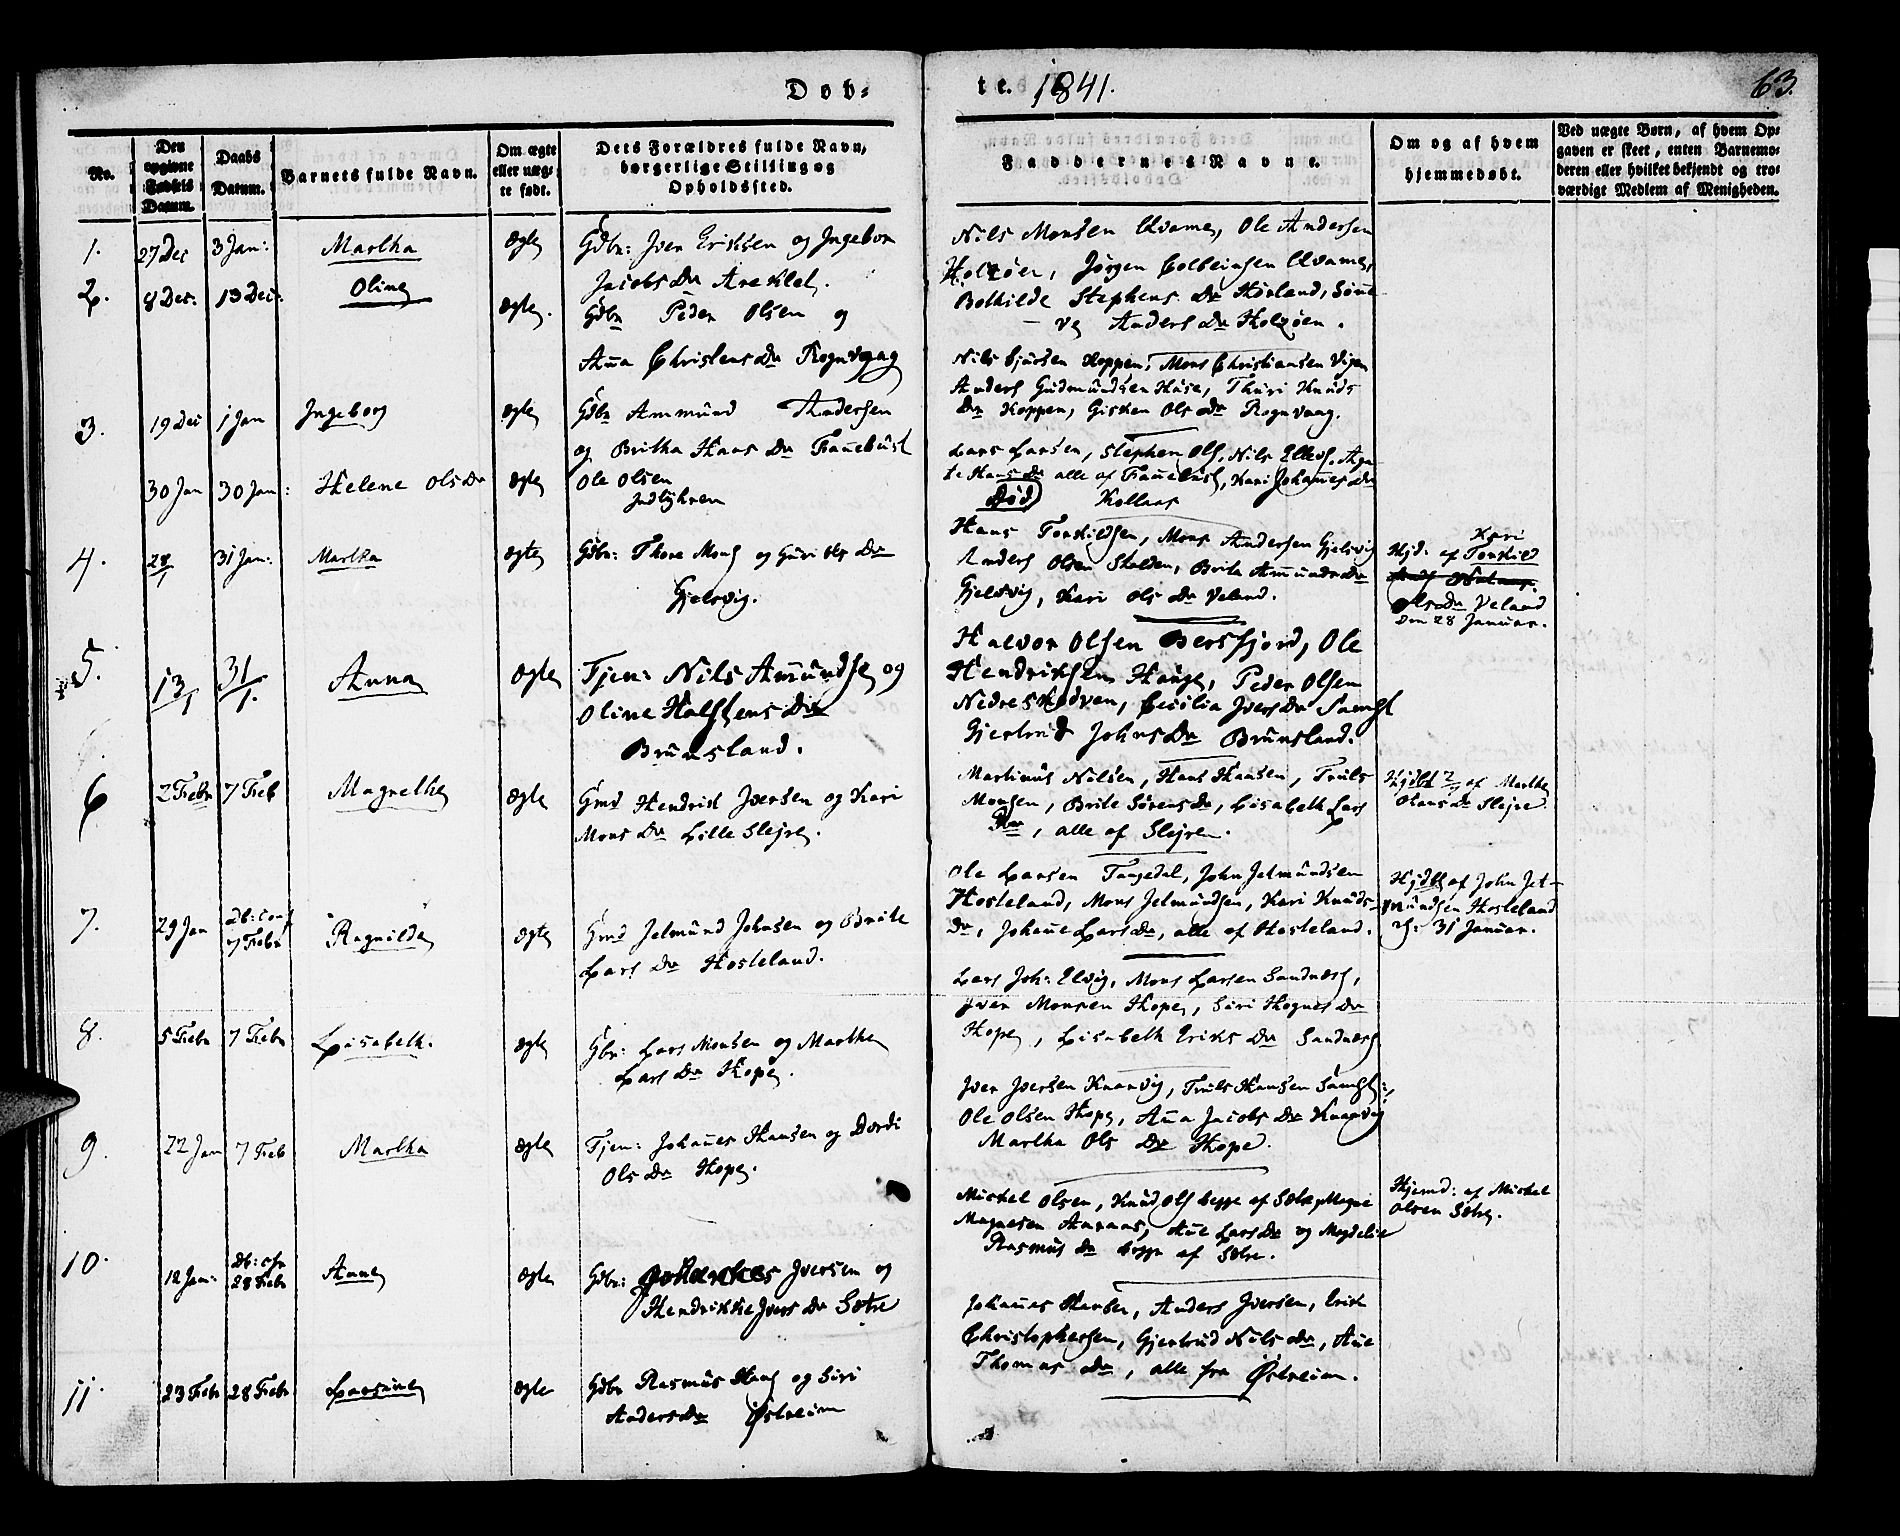 Døb-
te. 1841.
63.
No.
Den opgivne Fødsels Datum.
Daabs Datum.
Barnets fulde Navn.
Om ægte eller uægte født.
Dets Forældres fulde Navn, borgerlige Stilling og Opholdssted.
Faddernes Navne.
Om og af hvem hjemmedøbt.
Ved uægte Børn, af hvem Opgaven er skeet, enten Barnemoderen eller hvilket bekjendt og troværdigt Medlem af Menigheden.
1. 27 Dec 3 Jan: Martha Ægte Gdbr: Iver Eriksen og Ingebor
Jacobs Dr
Nils Monsen Kvame, Ole Andersen
Holzøen, Jørgen Kvame,
Bothilde Stephens Dr Høyland, Sønne
ve Anders Dr Holzøen.
2. 8 Dec. 13 Dec: Oline Ægte. Gdbr Peder Olsen og
Anna Christens Dr Rognvaag
Nils Koppen, Mons Christiansen
Anders Gudmundsen Huse, Thuri Knuds
Dr Koppen, Gisken Ols Dr Rognvaag.
3. 19 Dec 1 Jan Ingeborg Ægte Gdbr Ammund Andersen
og Britha Hans Dr Fannebust
Lars Larsen, Stephen Ols, Nils Agn-
te Hans Dr alle af Fannebust, Kari Johannes Dr
Kollaas
30 Jan 30 Jan: Helene Ols Dr Ægte Ole Olsen
Død
4. 28/1 31 Jan: Martha Ægte Gdbr: Thore Mons og Guri Ols Dr
Gjelsvig.
Hans Torkildsen, Mons Andersen Gjelsvig
Anders Olsen Skolden, Brite Ammunds Dr
Gjelsvig, Kari Ols Dr Veland.
Hjd: af Kari Torkild
Ols Dr Veland
den 28 Januar.
5. 13/1 31/1. Anna Ægte Tjen: Nils Ammundsen og
Oline Halstens Dr
Brunsland.
Halvor Olsen Bersfjord, Ole
Hendriksen Hauge, Peder Olsen
Nedreskodven, Cecilia Ivers Dr
Gjertrud Johns Dr Brunsland.
6 2 Febr 7 Feb Magnethe Ægte Gmd Hendrik Iversen og Kari
Mons Dr Lille Slejre.
Martinus Nilsen, Hans Hansen, Truls
Monsen, Brite Sørens Dr, Lisabeth Lars
Dr, alle af Slejren.
Hjdbt 2/2 af Marthe
Hans Dr Slejre
7. 29 Jan 7 Febr Ragnilde Ægte Gmd Jetmund Johnsen og Brite
Lars Dr Hosteland.
Ole Larsen Tangedal, John Jetmundsen
Hosteland, Mons Jetmundsen, Kari Knuds-
Dr, Johanne Lars Dr, alle af Hosteland.
Hjdbt af John Jet-
mundsen Hosteland
31 Januar.
8. 5 Febr 7 Febr Lisabeth. Ægte Gbr: Lars Monsen og Marthe
Lars Dr Hope.
Lars Joh: Elvig, Mons Larsen Sandnæs,
Iver Monsen Hope, Siri Hognes Dr
Hope, Lisabeth Eriks Dr Sandnæs
9. 22 Jan 7 Feb Martha Ægte Tjen: Johannes Hansen og Dordi
Ols Dr Hope.
Iver Iversen Knarvig, Truls Hansen
Ole Olsen Hope, Anna Jacobs Dr Knarvig
Martha Ols Dr Hope.
10. 12 Jan: 28 Febr Anne Ægte Gdbr: Johannes Iversen og
Hendrikke Ivers Dr Sætre
Mickel Olsen, Knud Ols begge af Sætre, Magne
Magnesen Aanaas, Anne Lars Dr og Magdelie
Rasmus Dr begge af Sætre.
Hjemd: af Mickel
Olsen Sætre.
11. 23 Febr 28 Febr Larsine Ægte Gdbr Rasmus Hans og Siri
Anders Dr Østreim
Johannes Hansen, Anders Iversen, Erik
Christophersen, Gjertrud Nils Dr, Anne
Thomas Dr, alle fra Østreim.